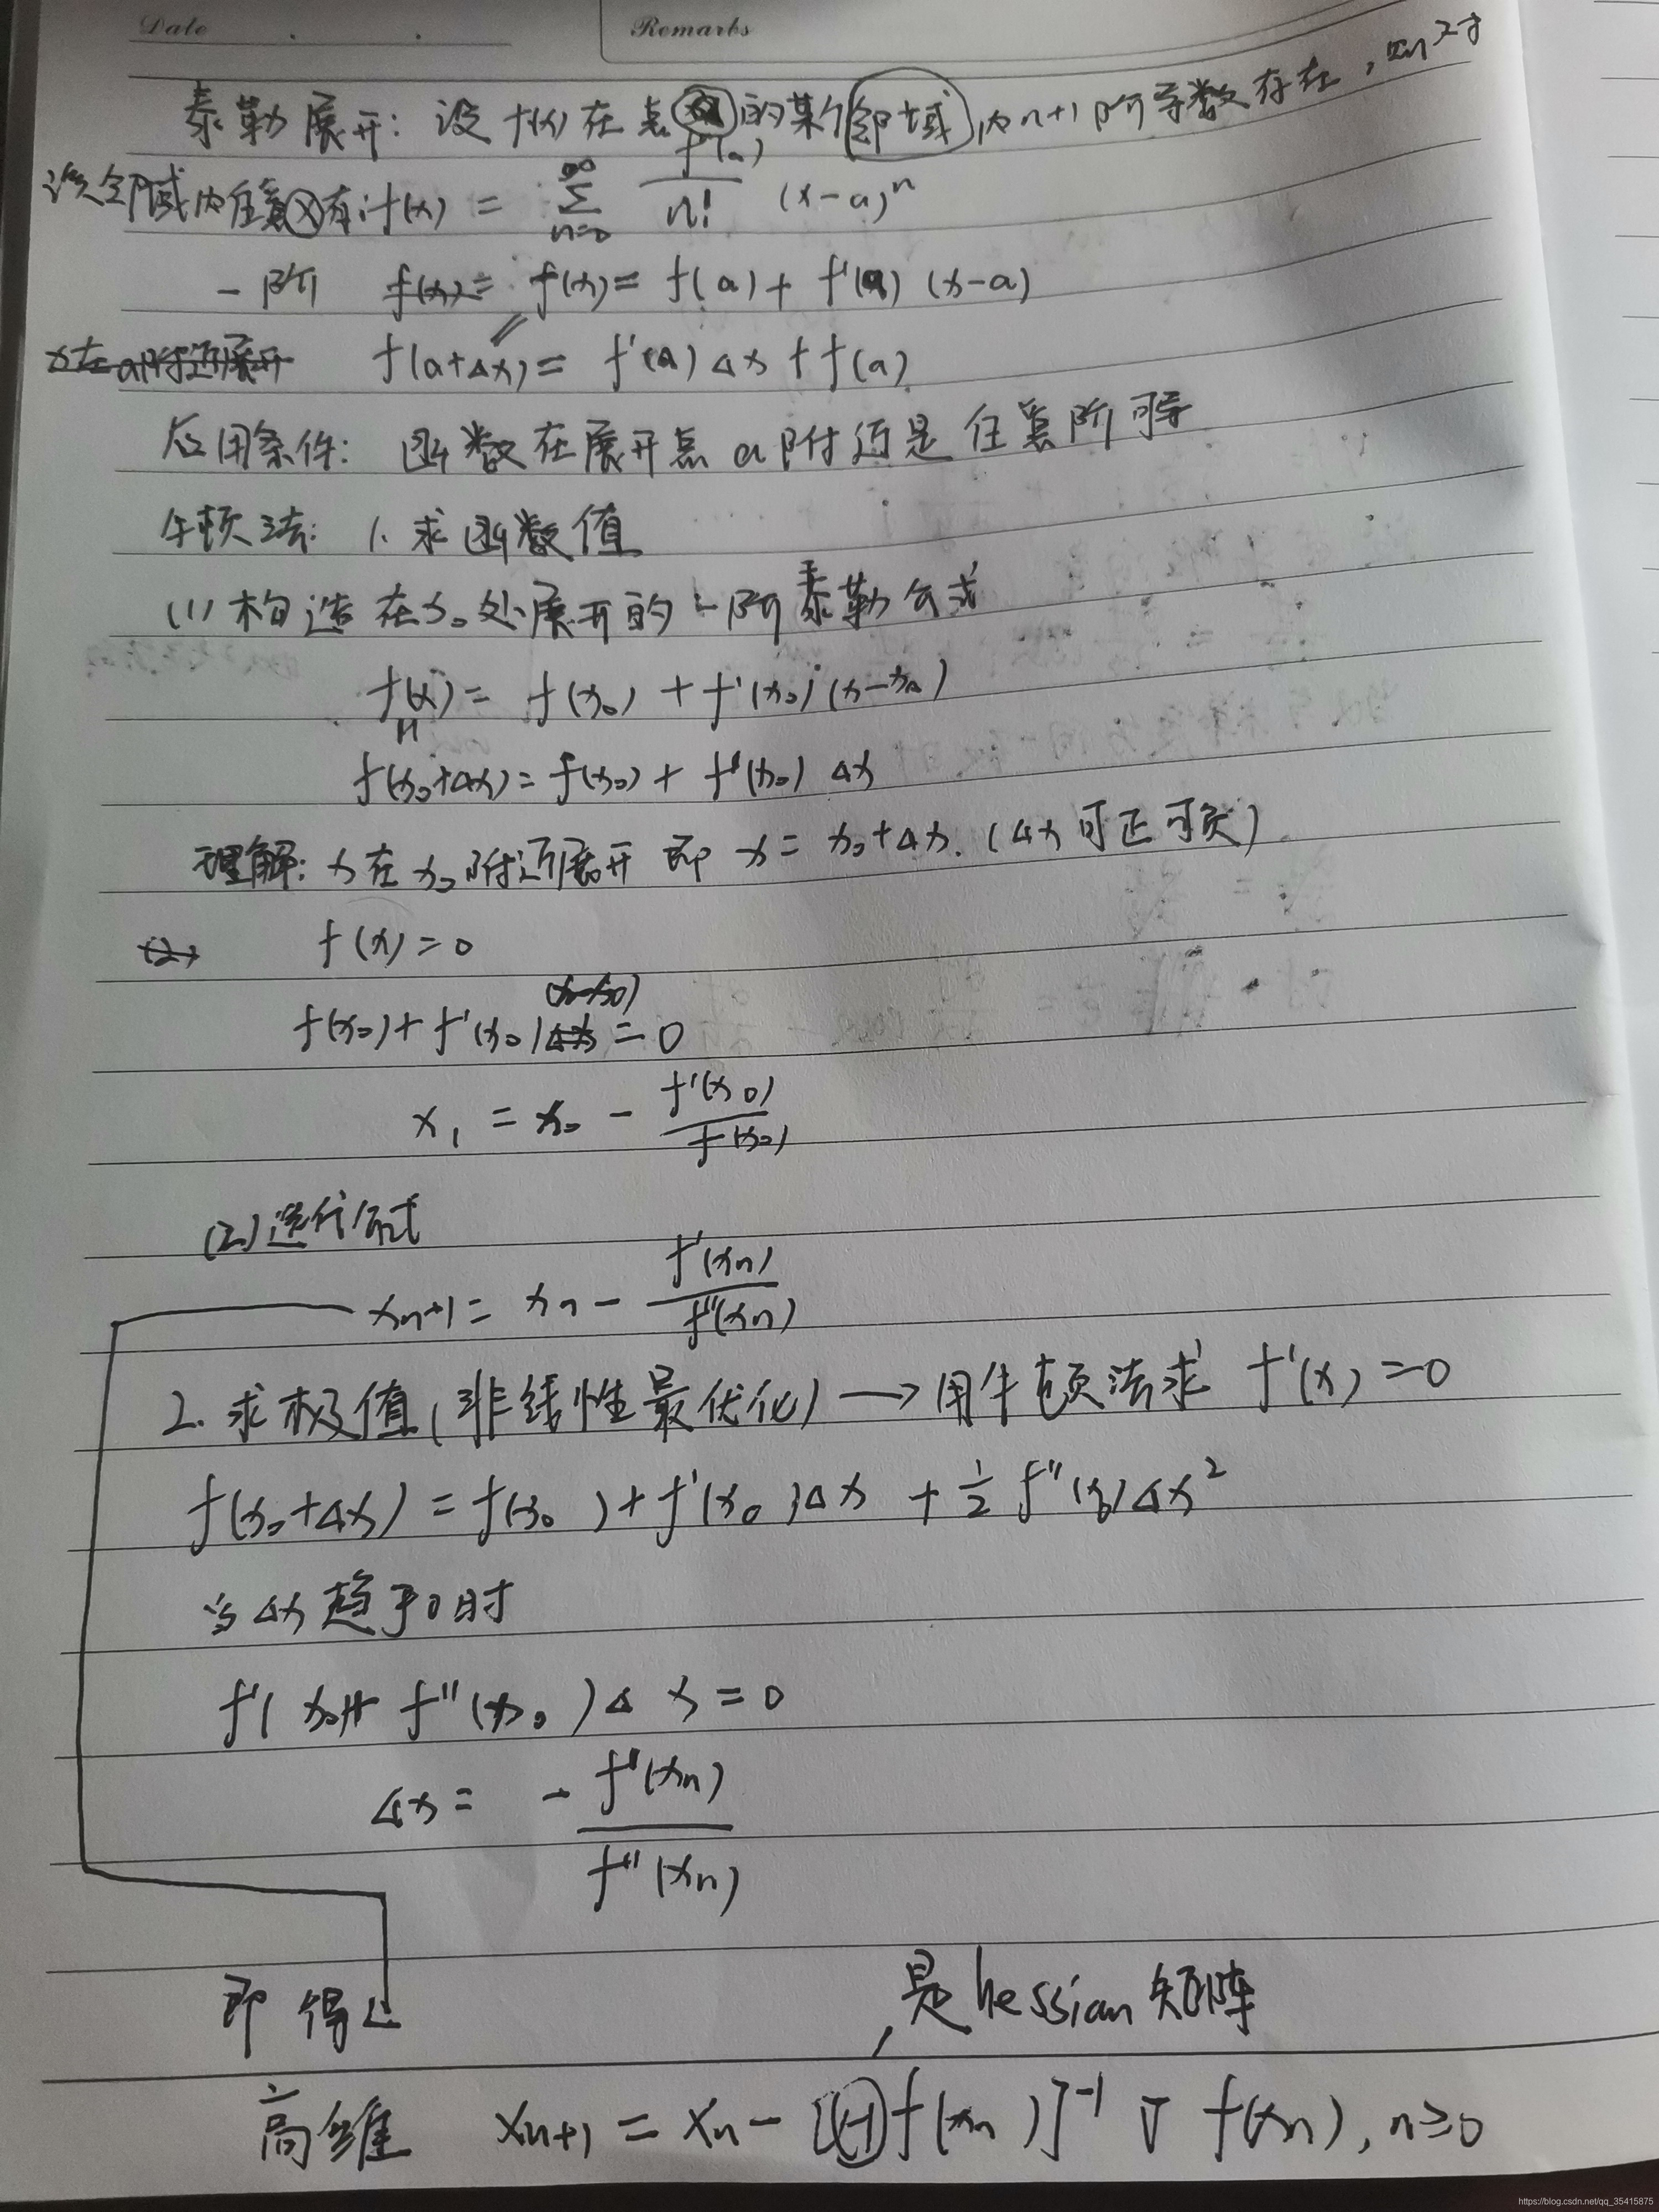 Date
Remarks
泰勒展开: 设 f(x) 在点 的某个邻域内 n+1 阶导数存在,
该邻域内任意 x 有: f(x) = ∑_{n=0}^{∞} f^{(a)}/n! (x-a)^n
一阶 f(x)= f(x)= f(a) + f'(a) (x-a)
x在a附近展开 f(a+Δx) = f'(a) Δx + f(a)
应用条件: 函数在展开点 a 附近是任意阶可导
牛顿法: 1. 求函数值
(1) 构造在x₀处展开的一阶泰勒公式
f(x) = f(x₀) + f'(x₀)(x-x₀)
f(x₀+Δx) = f(x₀) + f'(x₀) Δx
理解: x在x₀附近展开 即 x = x₀+Δx. (Δx可正可负)
(2) f(x)=0
f(x₀)+f'(x₀)Δx (x-x₀) =0
x₁ = x₀ - f'(x₀)/f(x₀)
(2) 迭代公式
xn+1 = xn - f'(xn)/f''(xn)
2. 求极值(非线性最优化) → 用牛顿法求 f'(x) =0
f(x₀+Δx) = f(x₀) + f'(x₀)Δx + ½ f''(x₀)Δx²
当Δx趋于0时
f'(x₀)+ f''(x₀)Δx = 0
Δx = - f'(xn)/f''(xn)
即得
是hessian矩阵
高维 xn+1 = xn - [Hf(xn)]⁻¹ ∇ f(xn), n≥0
https://blog.csdn.net/qq_35415875